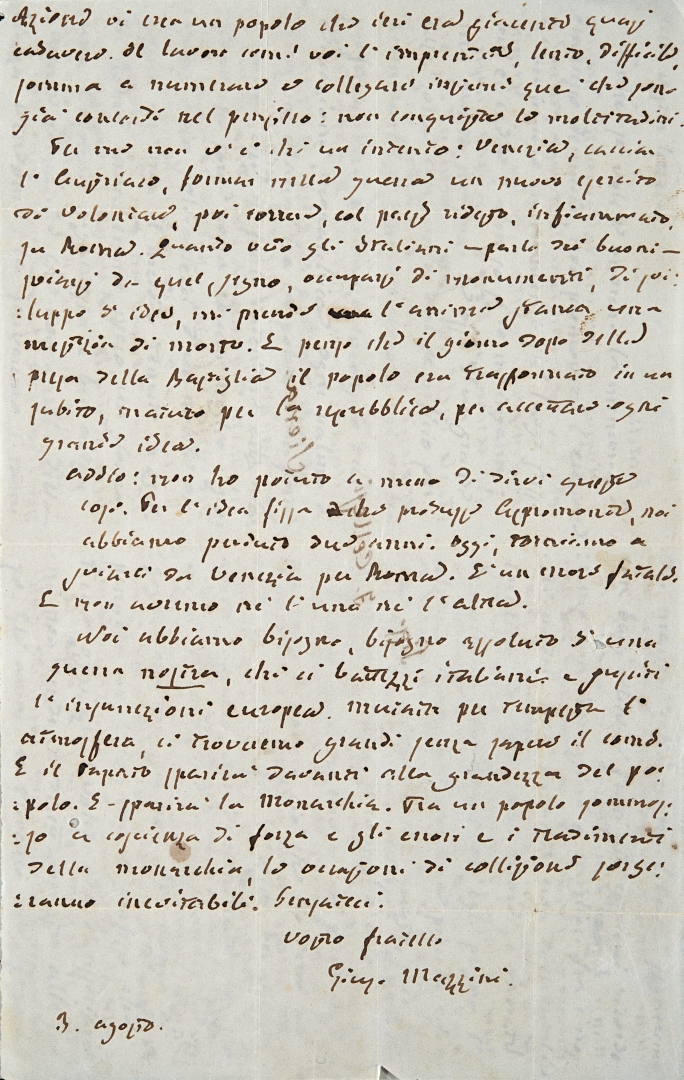 Azione vi crea un popolo che ieri era giacente quasi
cadavere. Il lavoro come voi l'imprendete, lento, difficile,
somma a numerare e collegare insieme quei che sono
già concordi nel pensiero: non conquista le moltitudini.
Per me non v'è che un intento: Venezia, cacciar
l'Austriaco, formar nella guerra un nuovo esercito
di volontari, poi tornare, col paese ridesto, infiammato,
su Roma. Quando veto gli Italiani – parlo dei buoni –
sviarsi da quel segno, occuparsi di monumenti, di svi:
:luppo d'idee, mi prende l'anima stanca una
mestizia di morte. E penso che il giorno dopo della
presa della Bastiglia il popolo era trasformato in un
subito, maturo per la repubblica, per accettare ogni
grande idea.
addio: non ho potuto a meno di dirvi queste
cose. Per l'idea fissa che produsse Aspromonte, noi
abbiamo perduto due anni. Oggi, torniamo a
sviarci da Venezia per Roma. È un errore fatale.
E non avremo nè l'una nè l'altra.
Noi abbiamo bisogno, bisogno assoluto d'una
guerra nostra, che ci battezzi italiani e susciti
l'insurrezione europea. Mutata per tempesta l'
atmosfera, ci troveremo grandi senza sapere il come.
E il Papato sparirà davanti alla grandezza del po:
:polo. E sparirà la Monarchia. Tra un popolo sommos:
:so a coscienza di forza e gli errori e i tradimenti
della monarchia, le occasioni di collisione sorge:
:ranno inevitabili. Pensateci.
vostro fratello
Gius. Mazzini.
3. agosto.